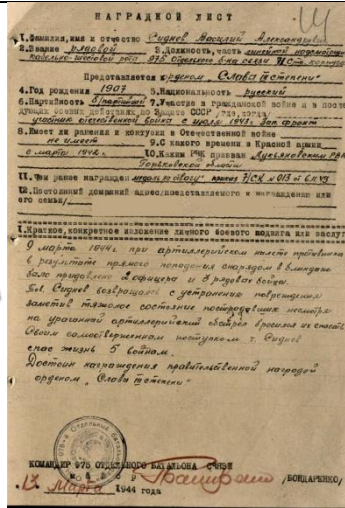 НАГРАДНОЙ ЛИСТ
1. Фамилия, имя и отчество Сиднев Василий Александрович
2. Звание рядовой 3. Должность, часть линейной
975 Отдельного б-на связи 71 Ст. корпуса
Представляется к ордену „Слава III степени"
4. Год рождения 1907 5. Национальность русский
6. Партийность б/партийный 7. Участие в гражданской войне и в после-
дующих боевых действиях по защите СССР где, когда
участник отечественной войны с 1942г.
8. Имеет ли ранения и контузии в Отечественной войне
не имеет 9. С какого времени в Красной армии
с марта 1942г. 10. Каким РВК призван Лукояновским РВК
Горьковской области
11. Чем ранее награжден медаль „за отвагу" приказ 71 СК № 013
12. Постоянный домашний адрес представляемого к награждению или
его семьи
1. Краткое, конкретное изложение личного боевого подвига или заслуг
9 марта 1944г. при артиллерийском налете противника
в результате прямого попадения снарядом в блиндаж
было придавлено 2 офицера и 3 рядовых бойца.
Тов. Сиднев возвращаясь с устранения повреждения
заметив тяжелое состояние пострадавших несмотря
на ураганный артиллерийский обстрел бросился их спасать
Своим самоотверженным поступком т. Сиднев
спас жизнь 5 воинам.
Достоин награждения правительственной наградой
орденом „Слава III степени"
КОМАНДИР 975 ОТДЕЛЬНОГО БАТАЛЬОНА СВЯЗИ
МАЙОР /БОНДАРЕНКО/
Марта 1944 года